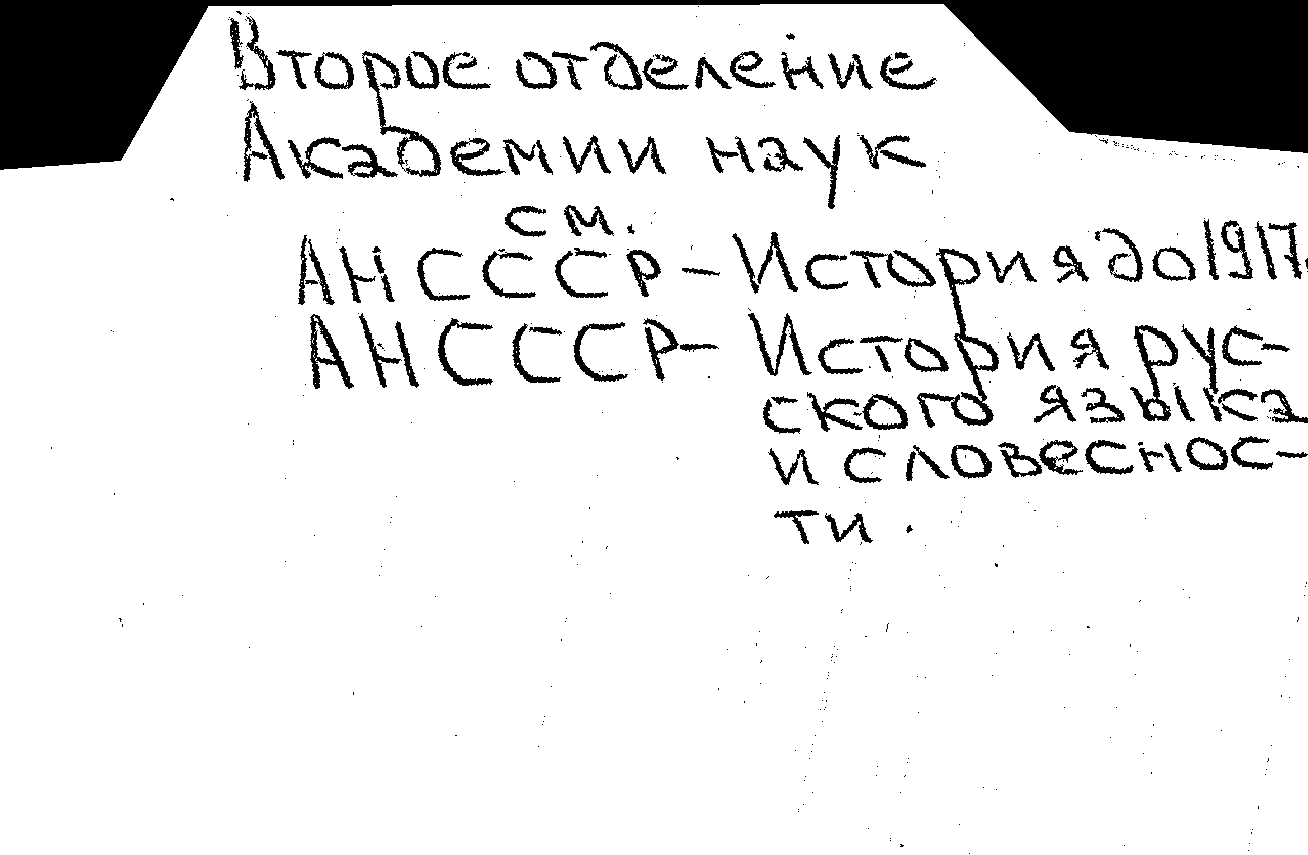 Второе отделение
Академии наук
см.
АН СССР - История до 1917.
АН СССР - История рус-
ского языка
и словеснос-
ти.